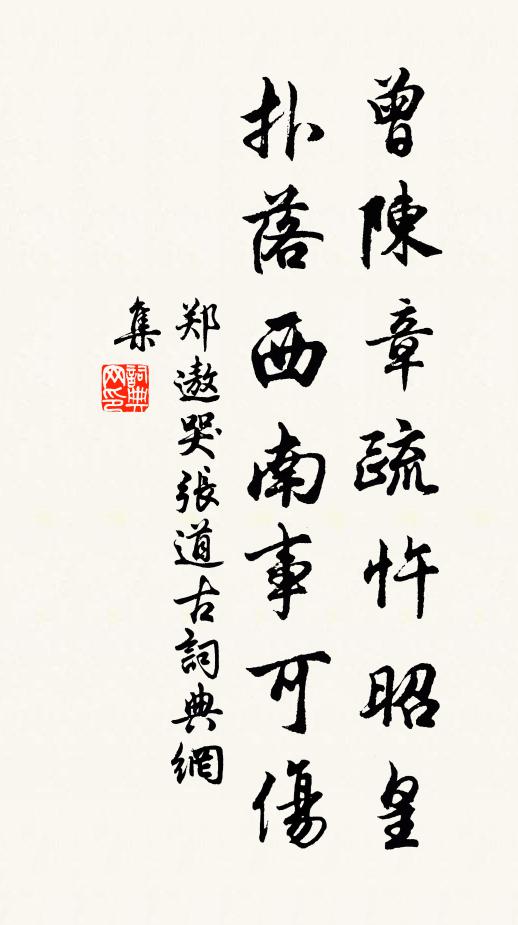 曾陳章疏忤昭皇
扑落西南事可傷
郑遨哭張道古詞典網
集
詞典网印